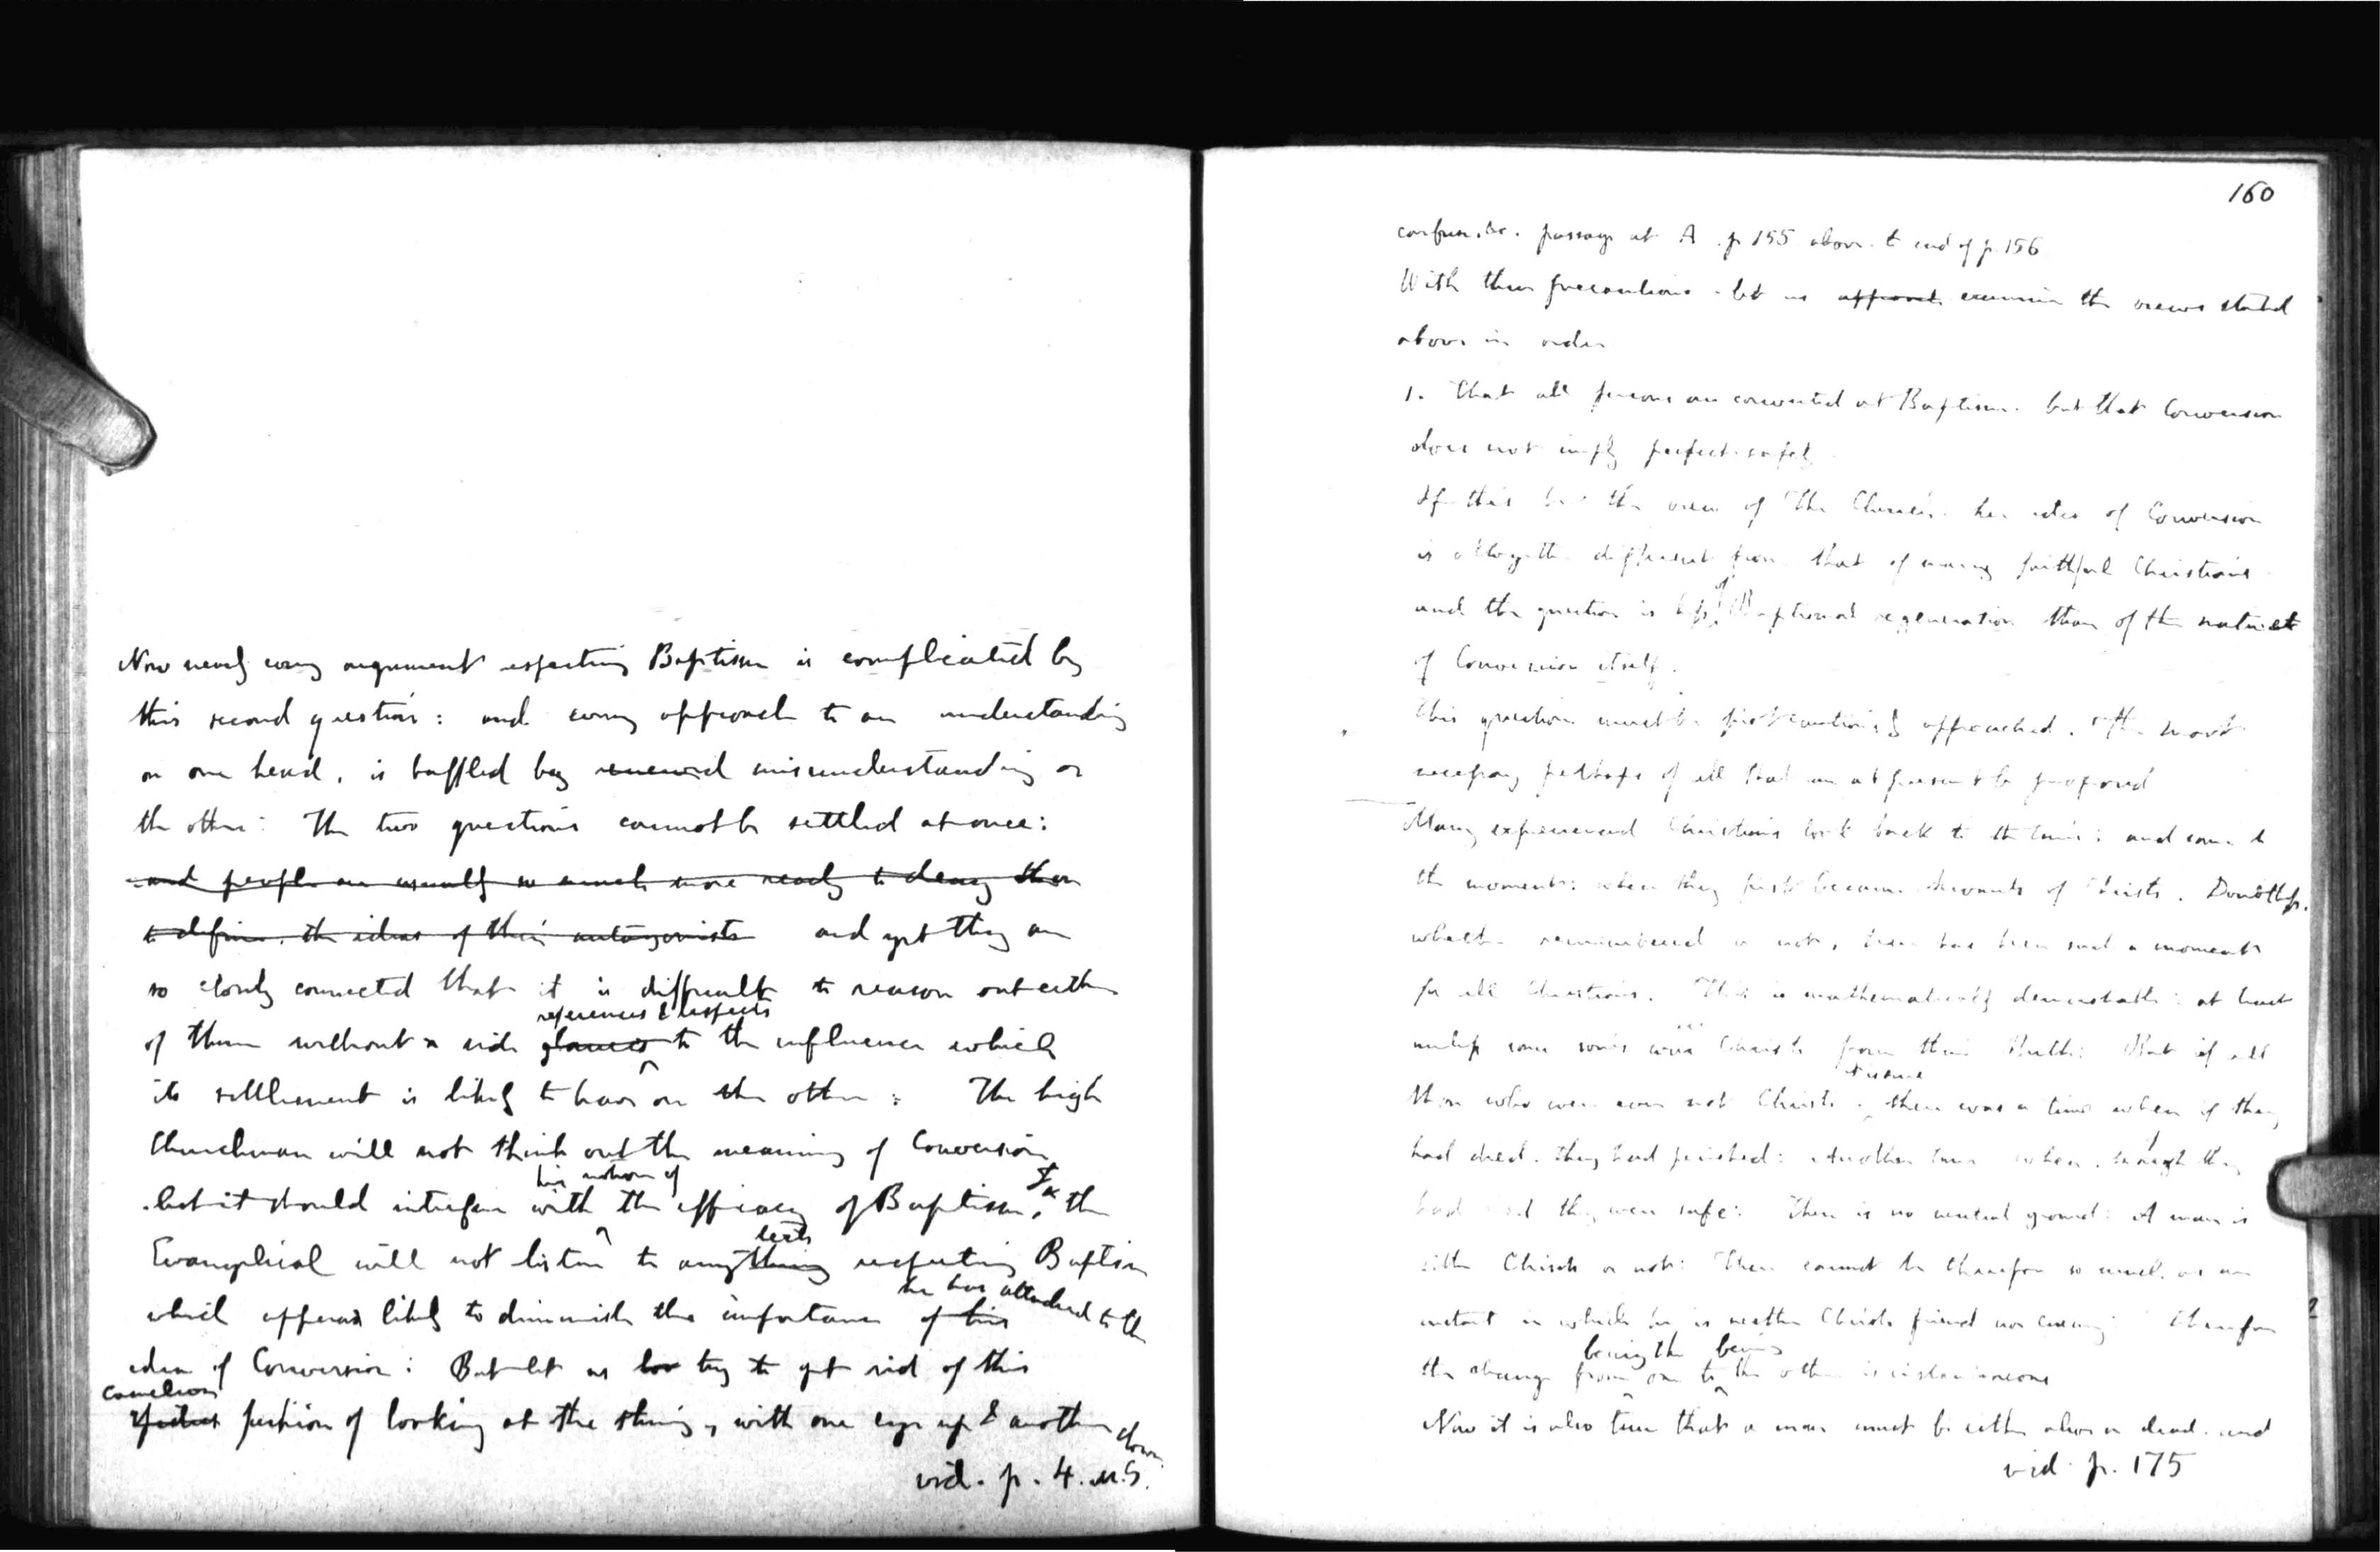 Now nearly every argument respecting Baptism is complicated by
this second question: and every approach to an understanding
on one head, is baffled by renewed misunderstanding on
the other: The two questions cannot be settled at once:
and people are usually so much more ready to deny than
to define, the ideas of their antagonists and yet they are
so closely connected that it is difficult to reason out either
references & respects
of them without a side glances to the influence which
its settlement is likely to have on the other: The high
Churchman will not think out the meaning of Conversion
his notion of
lest it should interfere with the efficacy of Baptism, & the
Evangelical will not listen to anything respecting Baptism
he has attached to the
which appears likely to diminish the importance of his
idea of Conversion: But let us try to get rid of this
Camelion
fashion of looking at the things, with one eye up & another down
vid. p. 4. M.S.
160
passage at A. p 155 above. to end of p. 156
With these precautions. let us approach examine the views stated
above in order
1. That all persons are converted at Baptism. but that Conversion
does not imply perfect safety
If this be the view of The Church. her idea of Conversion
is altogether different from that of many faithful Christians
and the question is less of Baptismal regeneration than of the nature
of Conversion itself.
This question must be first cautiously approached. as the most
necessary perhaps of all that can at present be proposed
Many experienced Christians look back to the time: and some to
the moment: when they first became servants of Christs. Doubtless.
whether remembered or not, there has been such a moment
for all Christians. This is mathematically demonstrable: at least
unless some souls were Christs from their Birth: But if all
those who were ever not Christs. there was a time when if they
had died. they had perished: Another time when, though they
had died they were safe: There is no neutral ground: A man is
either Christs or not: There cannot be therefore so much as an
instant in which he is neither Christs friend nor enemy: therefore
being the being
the change from one to the other is instantaneous
Now it is also true that a man must be either alive or dead. and
vid. p. 175